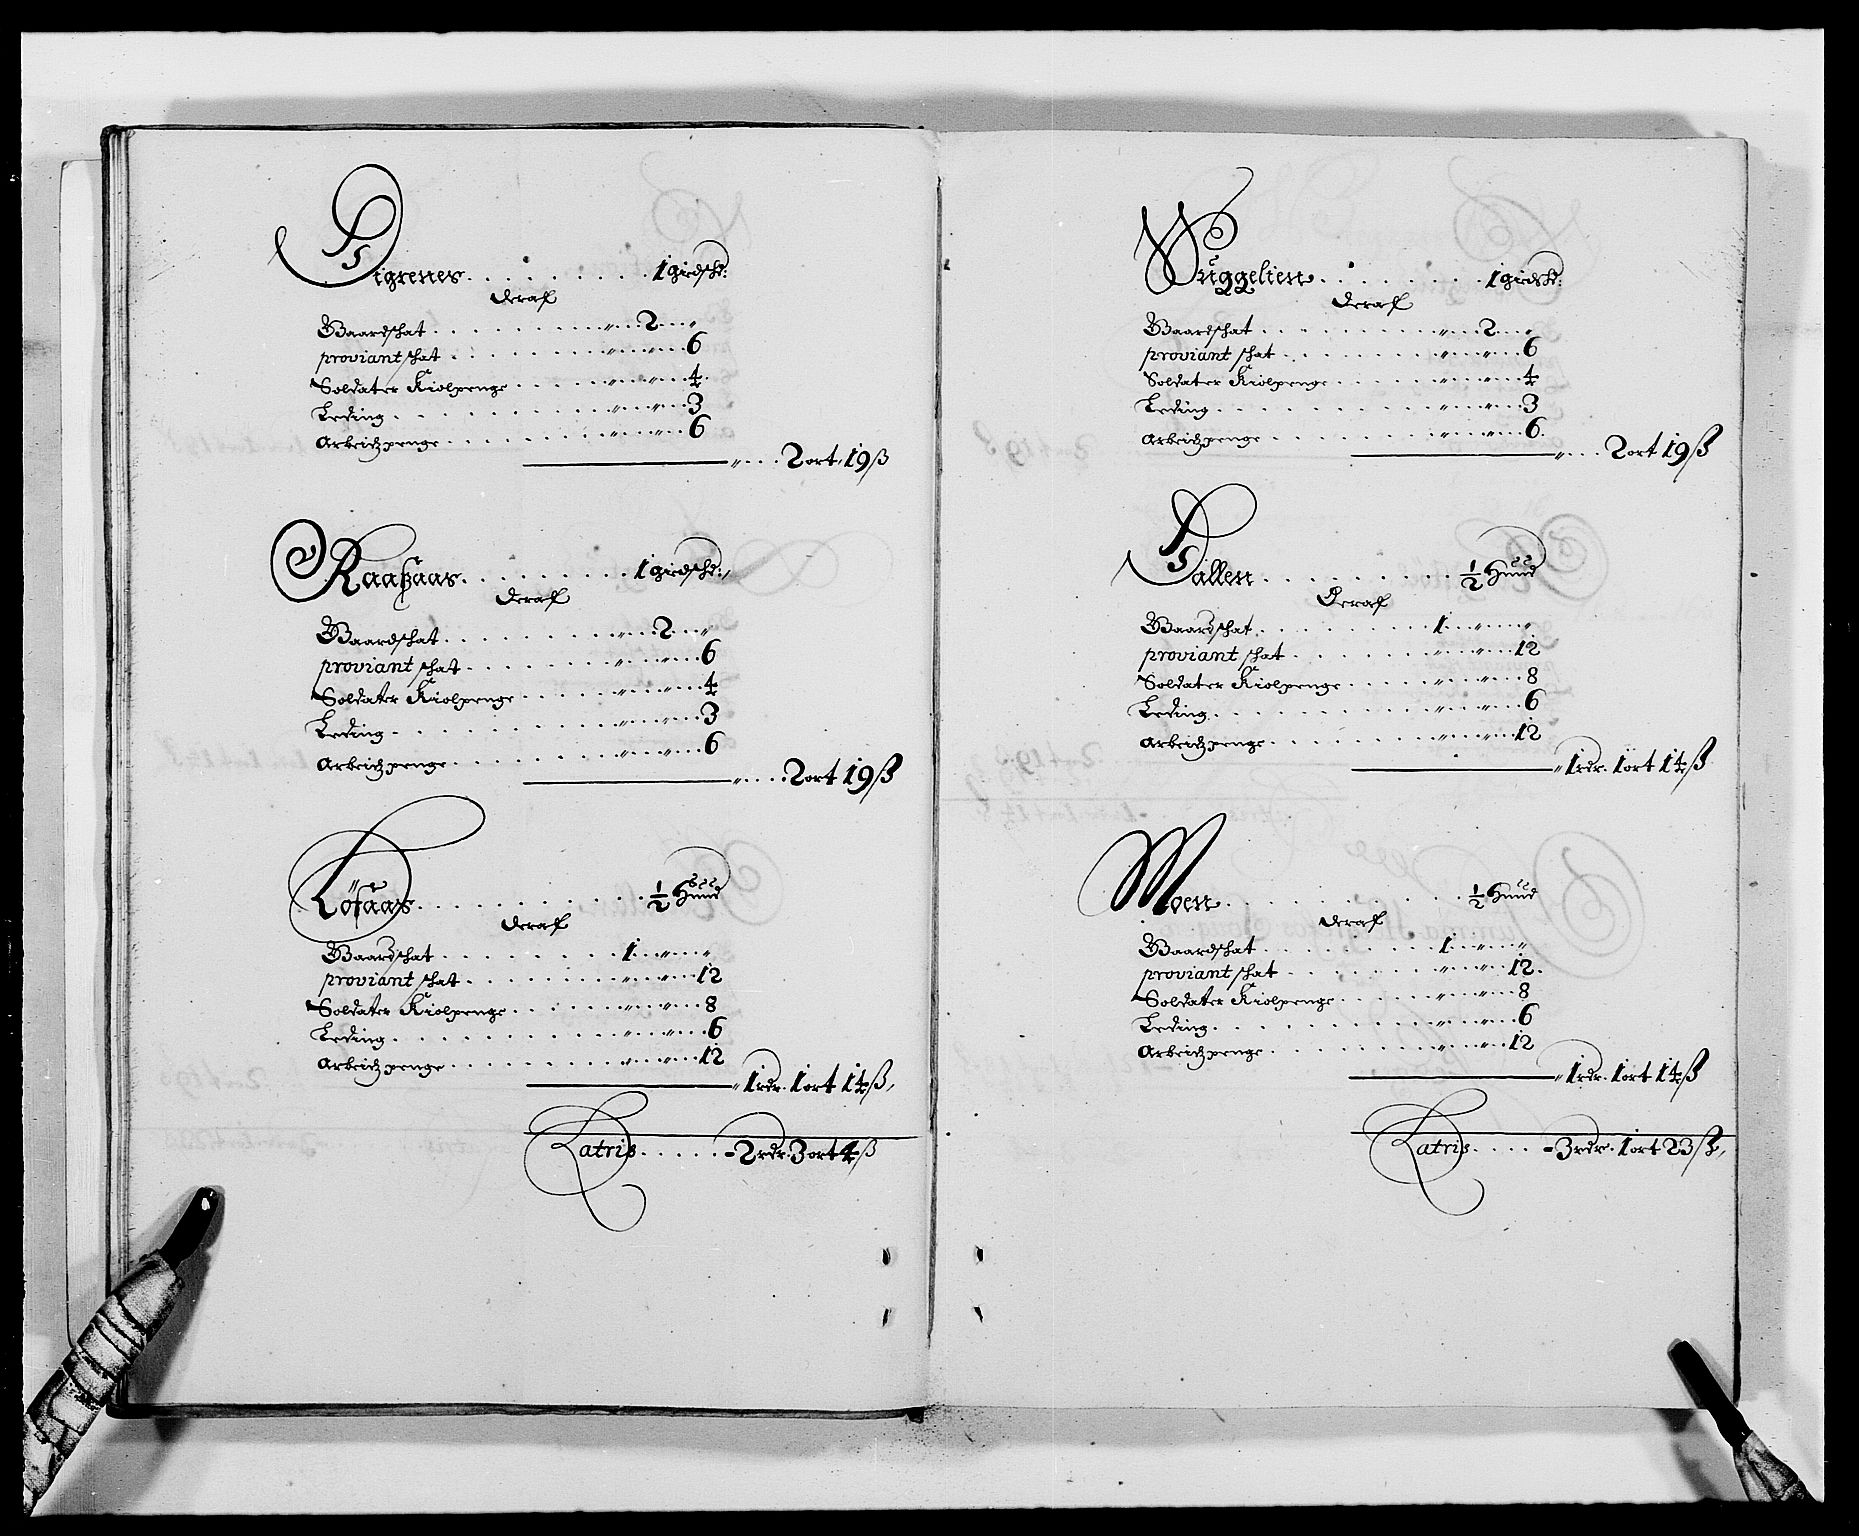 Sigrenes . . . . . . . . 1 girdske:
deraf
Gaardschat . . . . . . . . . „ . . 2 . . „
proviant schat . . . . . . . . „ . . „ . . 6
Soldater Kiolpenge . . . . . . „ . . „ . . 4
Leding . . . . . . . . . . „ . . „ . . 3
Arbeidzpenge . . . . . . . . „ . . „ . . 6
„ . . . . 2 ort 19 ß
Raaßaas . . . . . . . . 1 girdske:
deraf
Gaardschat . . . . . . . . . „ . . 2 . . „
proviant schat . . . . . . . . „ . . „ . . 6
Soldater Kiolpenge . . . . . . „ . . „ . . 4
Leding . . . . . . . . . . „ . . „ . . 3
Arbeidzpenge . . . . . . . . „ . . „ . . 6
„ . . . . 2 ort 19 ß
Löfaas . . . . . . . . . . ½ Huud
deraf
Gaardschat . . . . . . . . 1 . . „ . . „
proviant schat . . . . . . . . „ . . „ . . 12
Soldater Kiolpenge . . . . . . „ . . „ . . 8
Leding . . . . . . . . . . „ . . „ . . 6
Arbeidzpenge . . . . . . . . „ . . „ . . 12
„ 1 rdr. 1 ort 14 ß
Latris . . . . . - 2 rdr. 3 ort 4 ß
Wuggelien . . . . . . . . 1 girdske:
deraf
Gaardschat . . . . . . . . . „ . . 2 . . „
proviant schat . . . . . . . . „ . . „ . . 6
Soldater Kiolpenge . . . . . . „ . . „ . . 4
Leding . . . . . . . . . . „ . . „ . . 3
Arbeidzpenge . . . . . . . . „ . . „ . . 6
„ . . . . 2 ort 19 ß
Sallen . . . . . . . . . . ½ Huud
Deraf
Gaardschat . . . . . . . . 1 . . „ . . „
proviant schat . . . . . . . . „ . . „ . . 12
Soldater Kiolpenge . . . . . . „ . . „ . . 8
Leding . . . . . . . . . . „ . . „ . . 6
Arbeidzpenge . . . . . . . . „ . . „ . . 12
„ 1 rdr. 1 ort 14 ß
Moen . . . . . . . . . . ½ Huud
deraf
Gaardschat . . . . . . . . 1 . . „ . . „
proviant schat . . . . . . . . „ . . „ . . 12
Soldater Kiolpenge . . . . . . „ . . „ . . 8
Leding . . . . . . . . . . „ . . „ . . 6
Arbeidzpenge . . . . . . . . „ . . „ . . 12
„ 1 rdr. 1 ort 14 ß
Latris . . . . - 3 rdr. 1 ort 23 ß